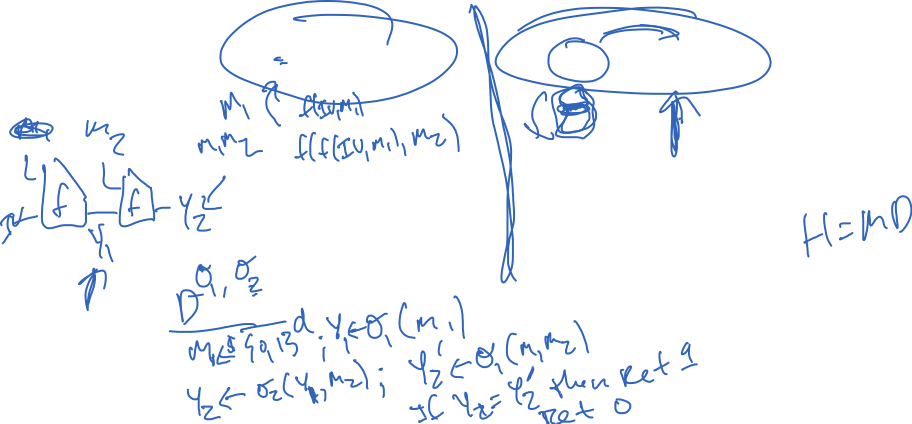 M₁ f(IV,M₁)
M₁M₂ f(f(IV,M₁),M₂)
M₂
f f Y₂
Y₁
H=MD
D^O₁,O₂
M₁←$ {0,1}^d ; Y₁←O₁(M₁)
Y₂←O₂(Y₁,M₂); Y₂'←O₁(M₁M₂)
If Y₂=Y₂' then Ret 1
Ret 0